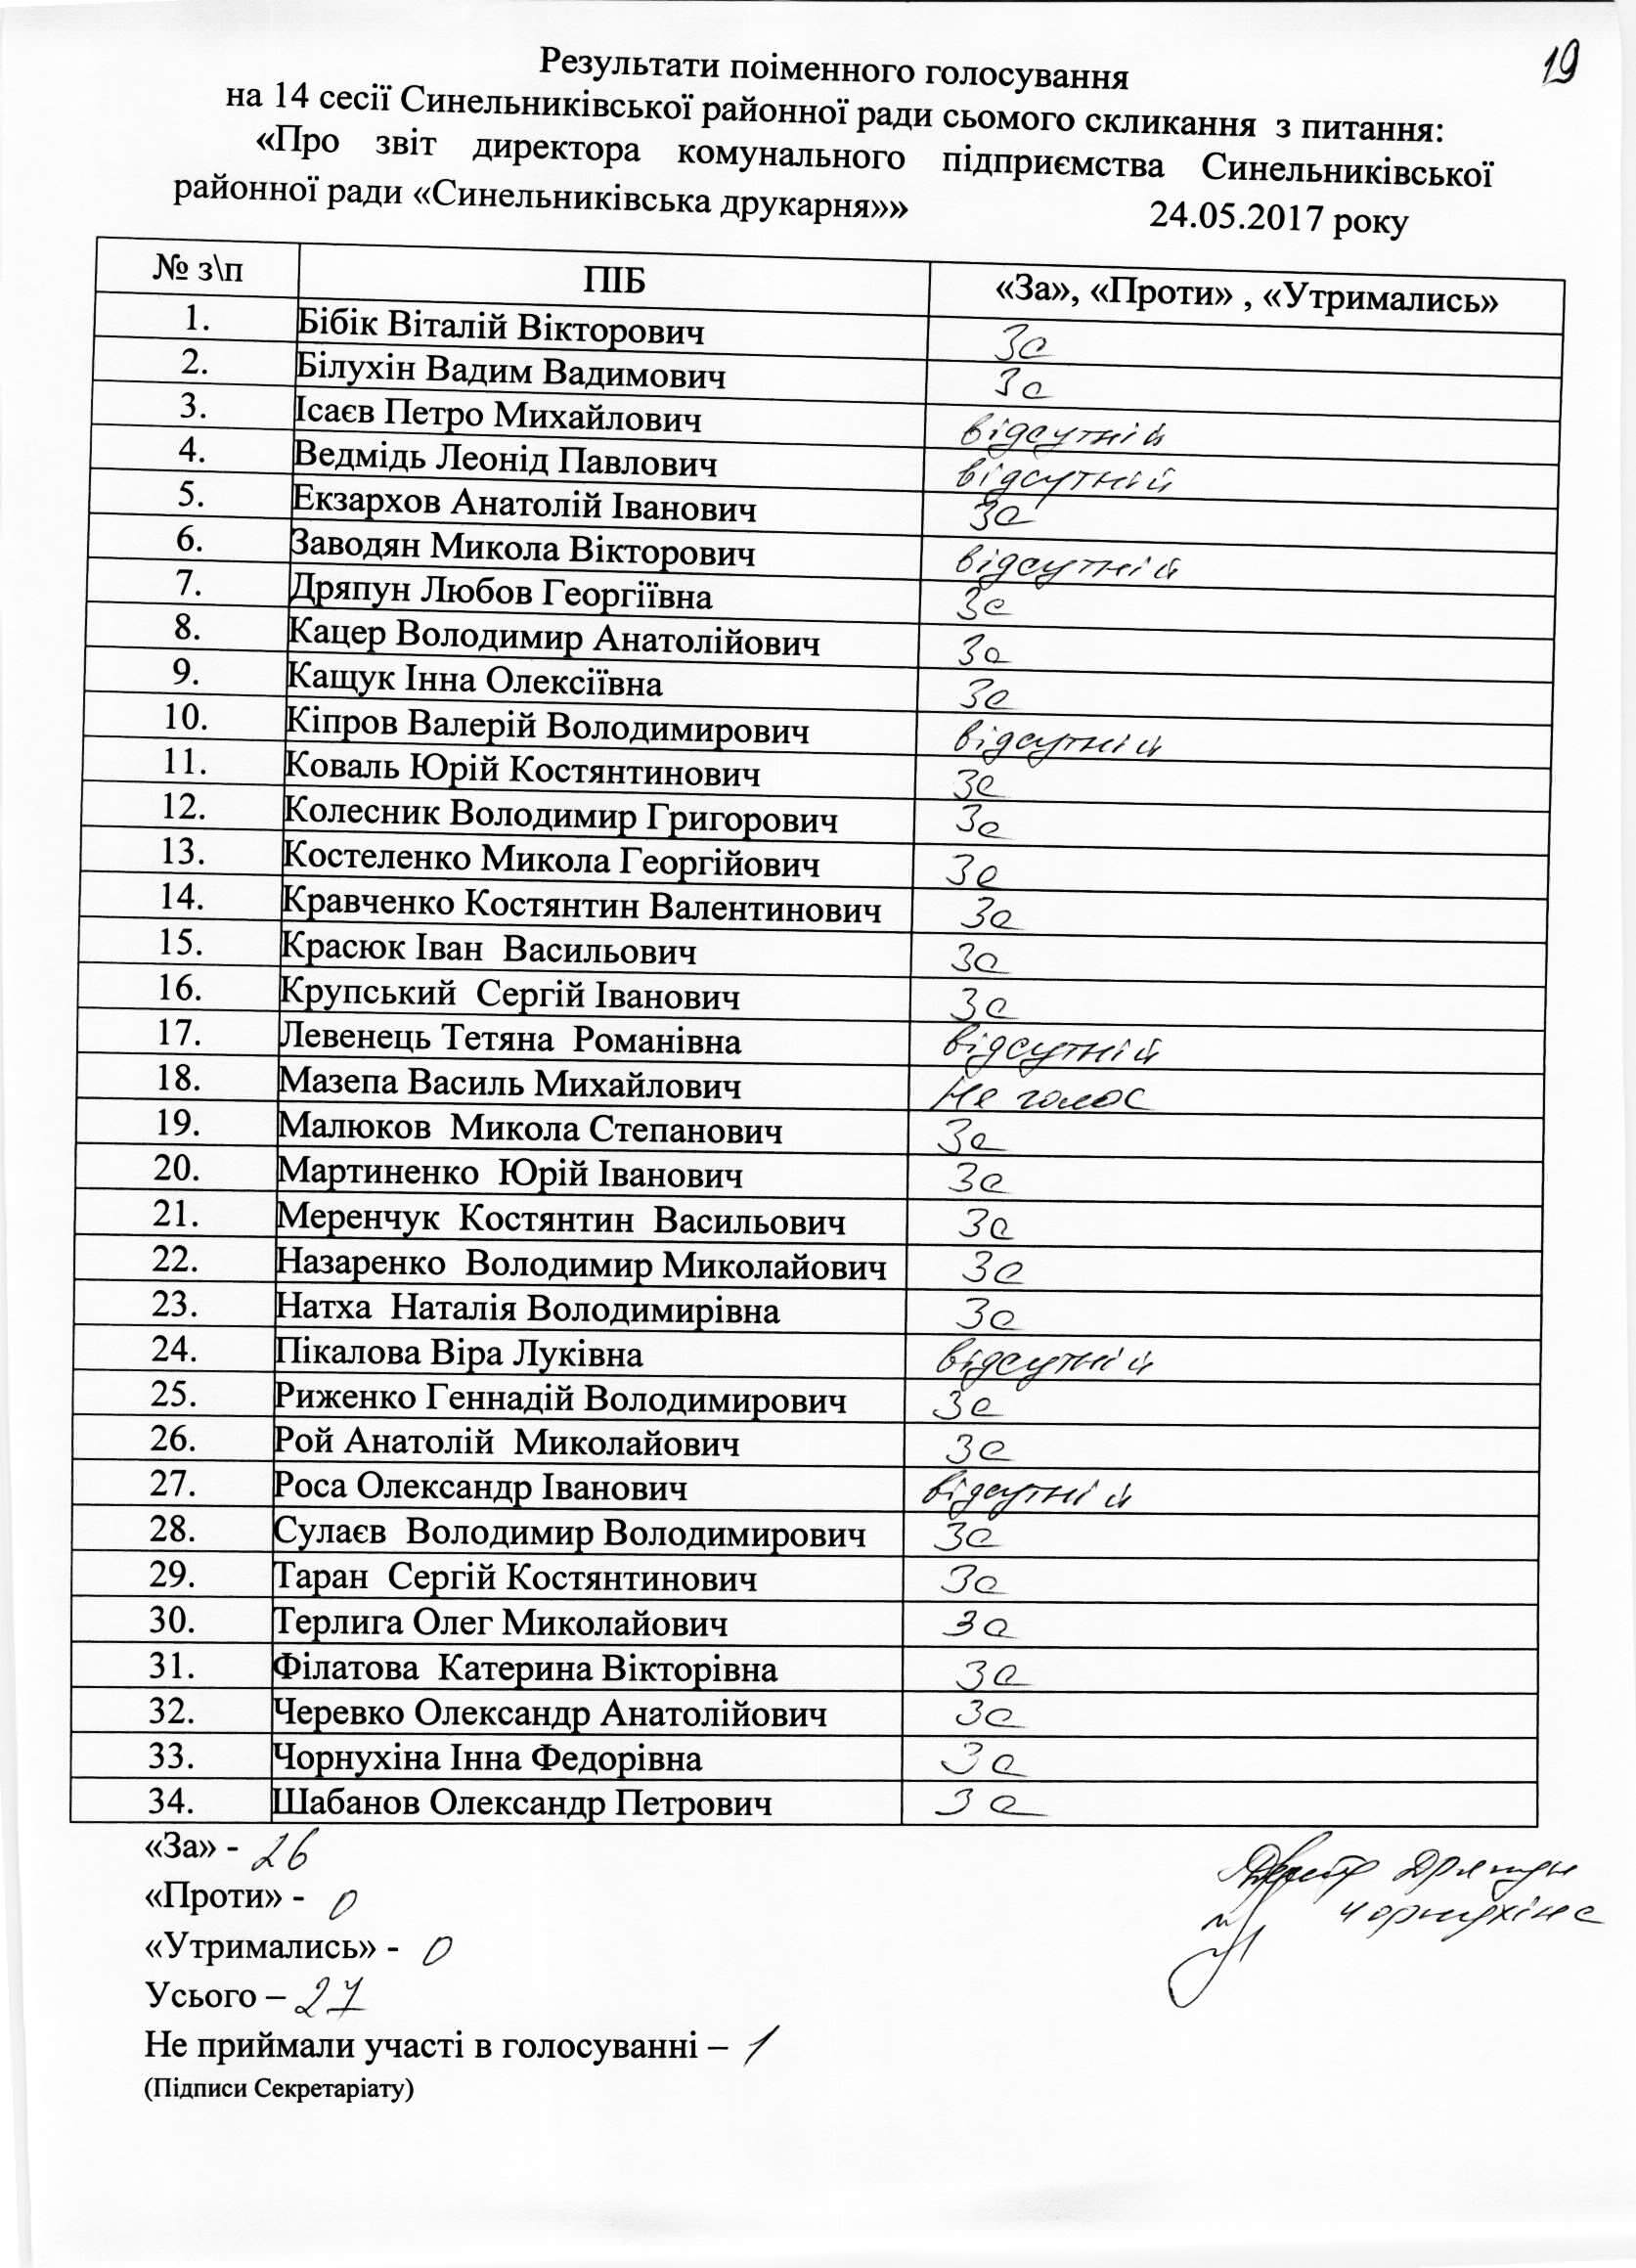 19
Результати поіменного голосування
на 14 сесії Синельниківської районної ради сьомого скликання з питання:
«Про звіт директора комунального підприємства Синельниківської
районної ради «Синельниківська друкарня»» 24.05.2017 року
№ з\п ПІБ «За», «Проти» , «Утримались»
1. Бібік Віталій Вікторович За
2. Білухін Вадим Вадимович За
3. Ісаєв Петро Михайлович відсутній
4. Ведмідь Леонід Павлович відсутній
5. Екзархов Анатолій Іванович За
6. Заводян Микола Вікторович відсутній
7. Дряпун Любов Георгіївна За
8. Кацер Володимир Анатолійович За
9. Кащук Інна Олексіївна За
10. Кіпров Валерій Володимирович відсутній
11. Коваль Юрій Костянтинович За
12. Колесник Володимир Григорович За
13. Костеленко Микола Георгійович За
14. Кравченко Костянтин Валентинович За
15. Красюк Іван Васильович За
16. Крупський Сергій Іванович За
17. Левенець Тетяна Романівна відсутній
18. Мазепа Василь Михайлович не голос
19. Малюков Микола Степанович За
20. Мартиненко Юрій Іванович За
21. Меренчук Костянтин Васильович За
22. Назаренко Володимир Миколайович За
23. Натха Наталія Володимирівна За
24. Пікалова Віра Луківна відсутній
25. Риженко Геннадій Володимирович За
26. Рой Анатолій Миколайович За
27. Роса Олександр Іванович відсутній
28. Сулаєв Володимир Володимирович За
29. Таран Сергій Костянтинович За
30. Терлига Олег Миколайович За
31. Філатова Катерина Вікторівна За
32. Черевко Олександр Анатолійович За
33. Чорнухіна Інна Федорівна За
34. Шабанов Олександр Петрович За
«За» - 26
Дряпун
«Проти» - 0
Чорнухіна
«Утримались» - 0
Усього – 27
Не приймали участі в голосуванні – 1
(Підписи Секретаріату)